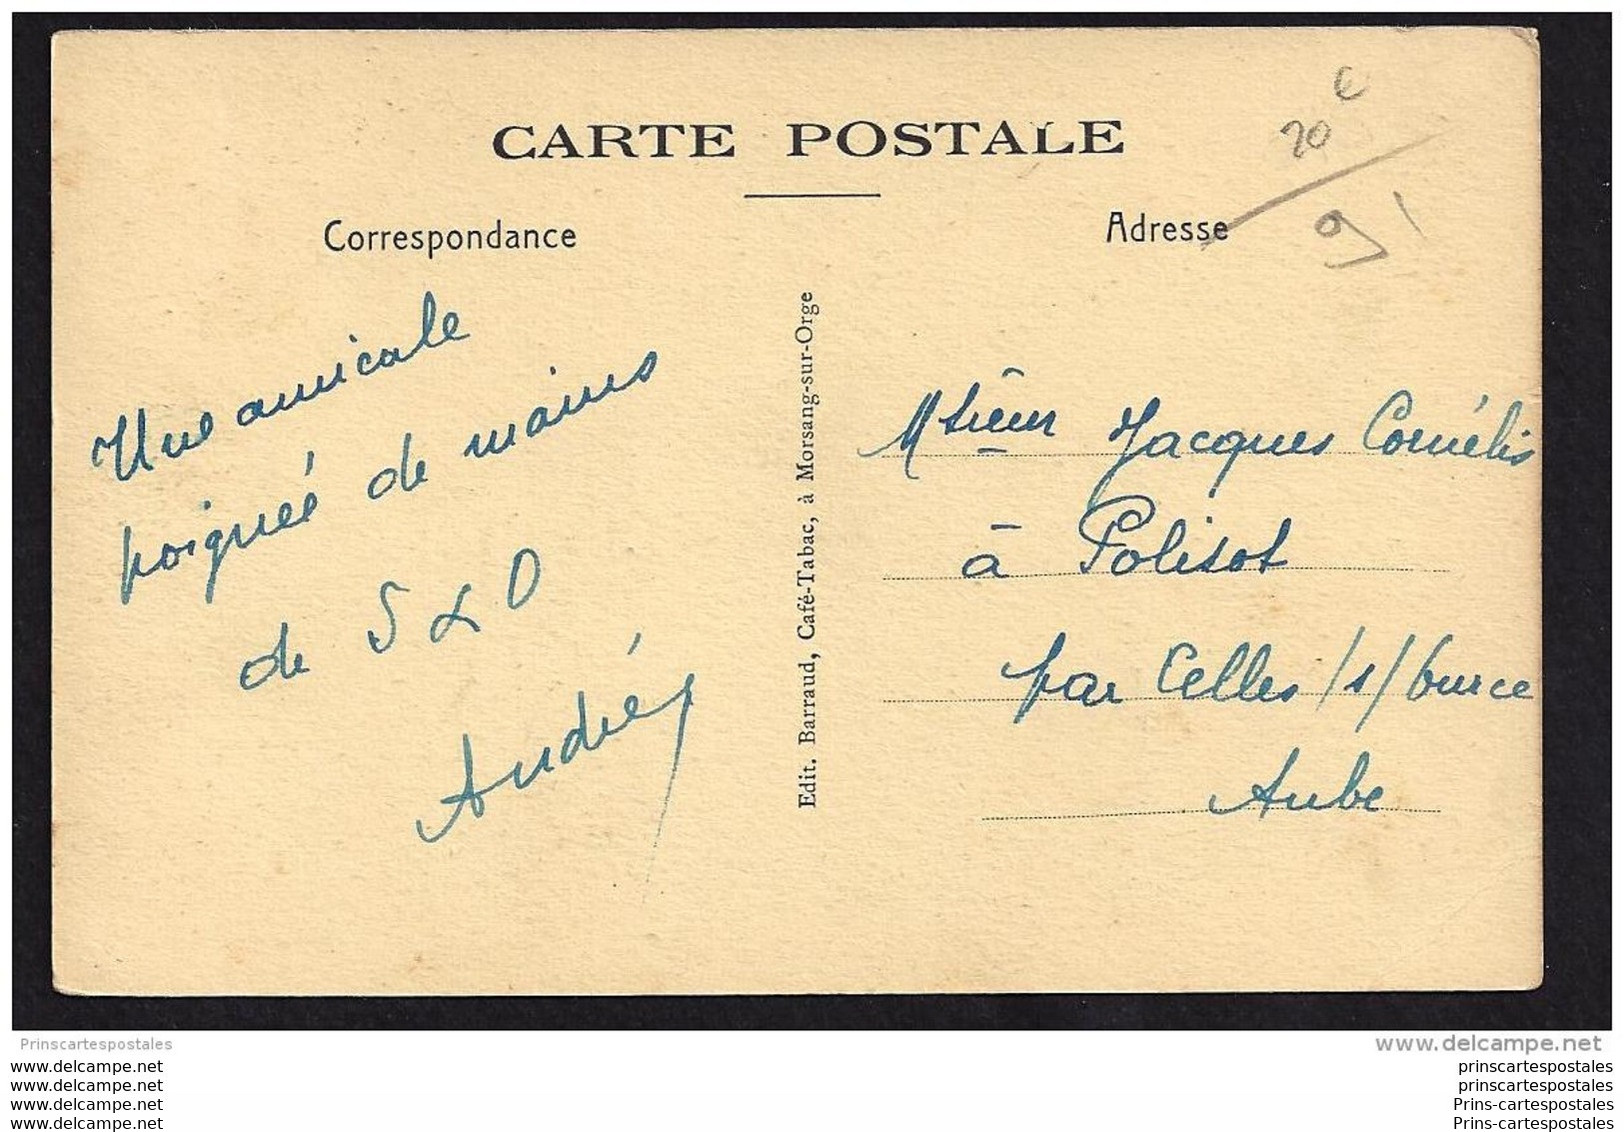 CARTE POSTALE
€
20
91
Correspondance
Adresse
Une amicale
poignée de mains
de S & O
André
Edit. Barraud, Café-Tabac, à Morsang-sur-Orge
Mtsieur Jacques Cornélis
à Polisot
par Celles /s/ Ource
Aube
Prinscartespostales
www.delcampe.net
www.delcampe.net
www.delcampe.net
www.delcampe.net
www.delcampe.net
prinscartespostales
prinscartespostales
Prins-cartespostales
Prins-cartespostales